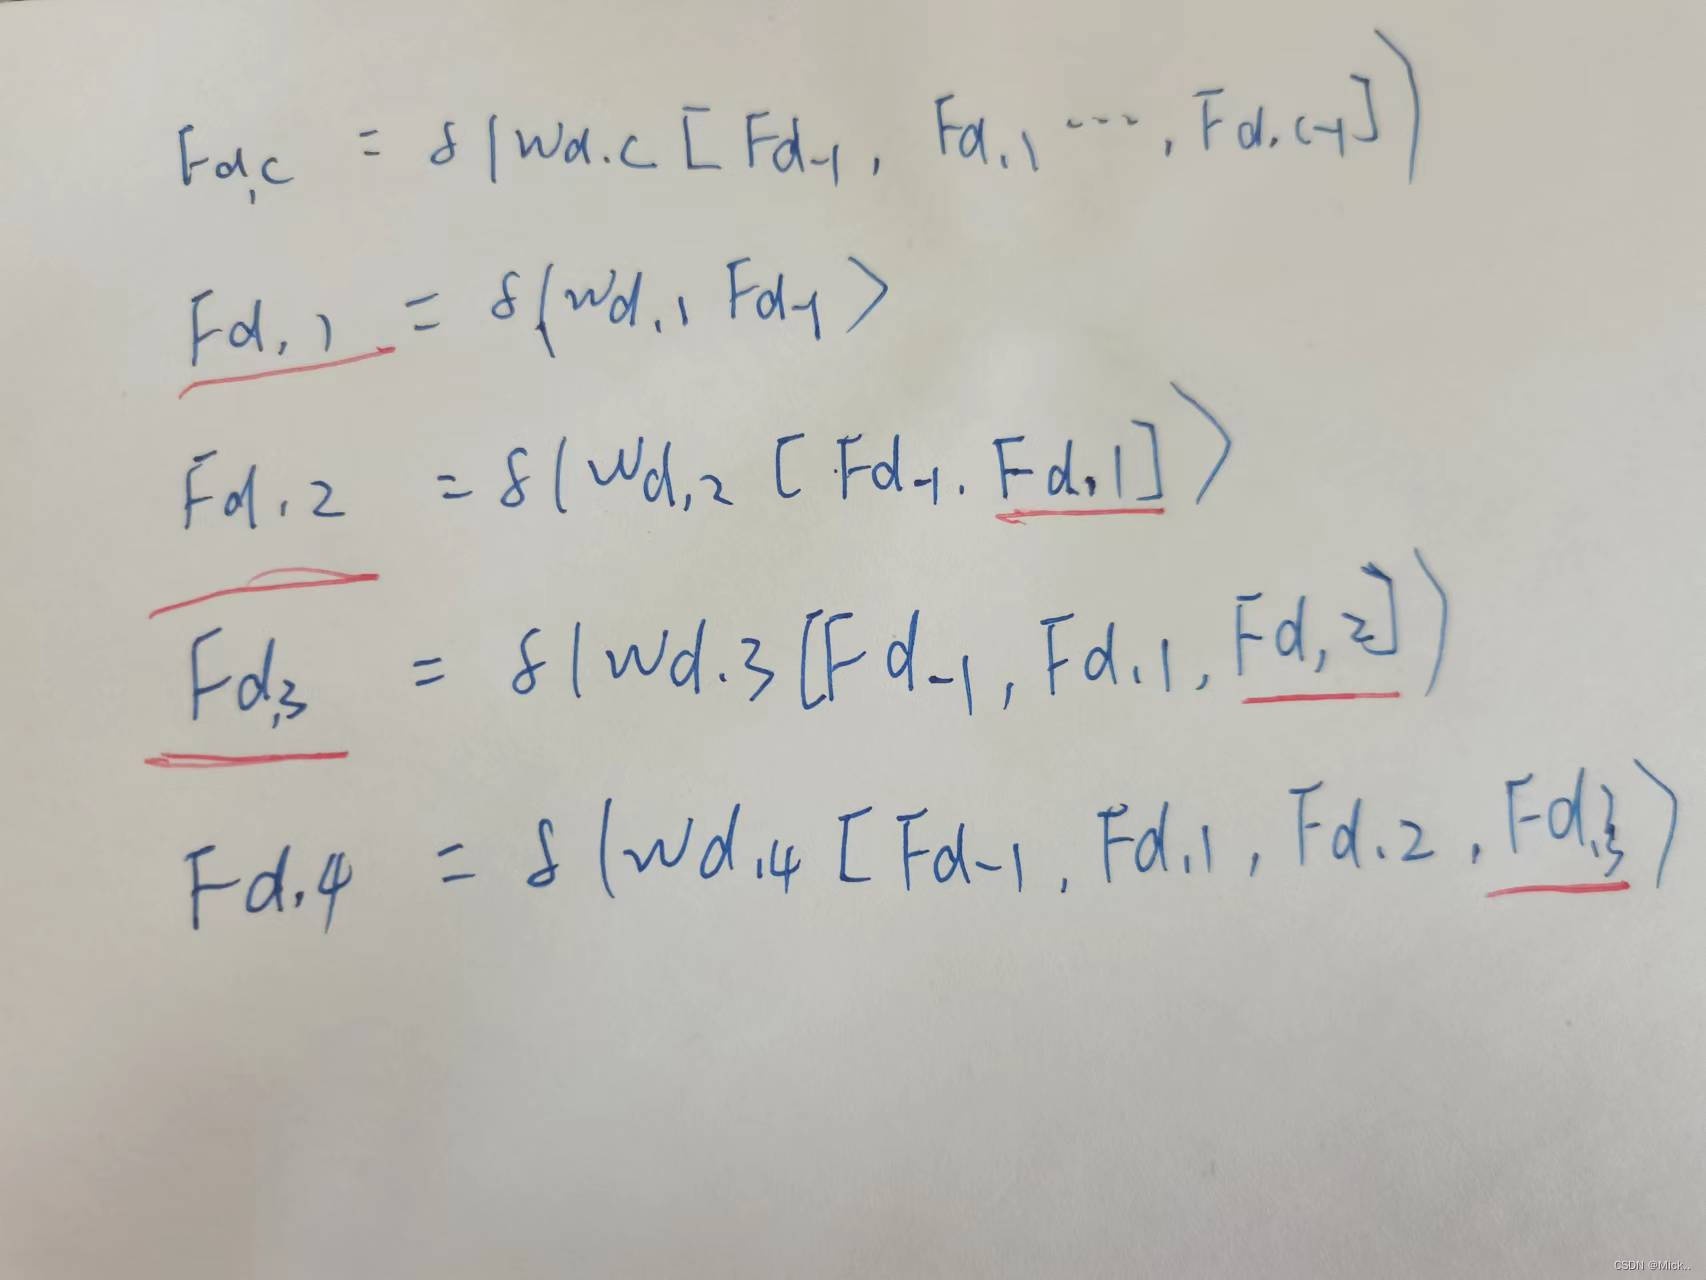 Fd,c = δ(Wd.c [Fd-1, Fd.1 ..., Fd.c-1])
Fd.1 = δ(Wd.1 Fd-1)
Fd.2 = δ(Wd,2 [Fd-1. Fd.1])
Fd,3 = δ(Wd.3 [Fd-1, Fd.1, Fd,2])
Fd.4 = δ(Wd.4 [Fd-1, Fd.1, Fd.2, Fd.3)
CSDN @Mick..